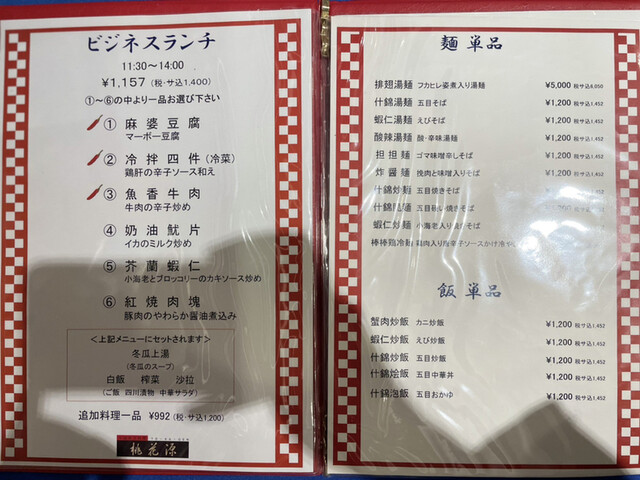 ビジネスランチ
11:30～14:00
¥1,157 (税・サ込1,400)
①～⑥の中より一品お選び下さい
① 麻婆豆腐
マーボー豆腐
② 冷拌四件 (冷菜)
鶏肝の辛子ソース和え
③ 魚香牛肉
牛肉の辛子炒め
④ 奶油魷片
イカのミルク炒め
⑤ 芥蘭蝦仁
小海老とブロッコリーのカキソース炒め
⑥ 紅焼肉塊
豚肉のやわらか醤油煮込み
＜上記メニューにセットされます＞
冬瓜上湯
(冬瓜のスープ)
白飯 榨菜 沙拉
(ご飯 四川漬物 中華サラダ)
追加料理一品 ¥992 (税・サ込1,200)
桃花源
麺 単品
排翅湯麺 フカヒレ姿煮入り湯麺 ¥5,000 税サ込6,050
什錦湯麺 五目そば ¥1,200 税サ込1,452
蝦仁湯麺 えびそば ¥1,200 税サ込1,452
酸辣湯麺 酸・辛味湯麺 ¥1,200 税サ込1,452
担担麺 ゴマ味噌辛しそば ¥1,200 税サ込1,452
炸醤麺 挽肉と味噌入りそば ¥1,200 税サ込1,452
什錦炒麺 五目焼きそば ¥1,200 税サ込1,452
什錦 麺 五目 焼きそば ¥1,200 税サ込1,452
蝦仁炒麺 小海老入り焼そば ¥1,200 税サ込1,452
棒棒鶏冷麺 鶏肉入り 辛子ソースかけ冷や ¥1,200 税サ込1,452
飯 単品
蟹肉炒飯 カニ炒飯 ¥1,200 税サ込1,452
蝦仁炒飯 えび炒飯 ¥1,200 税サ込1,452
什錦炒飯 五目炒飯 ¥1,200 税サ込1,452
什錦烩飯 五目中華丼 ¥1,200 税サ込1,452
什錦泡飯 五目おかゆ ¥1,200 税サ込1,452